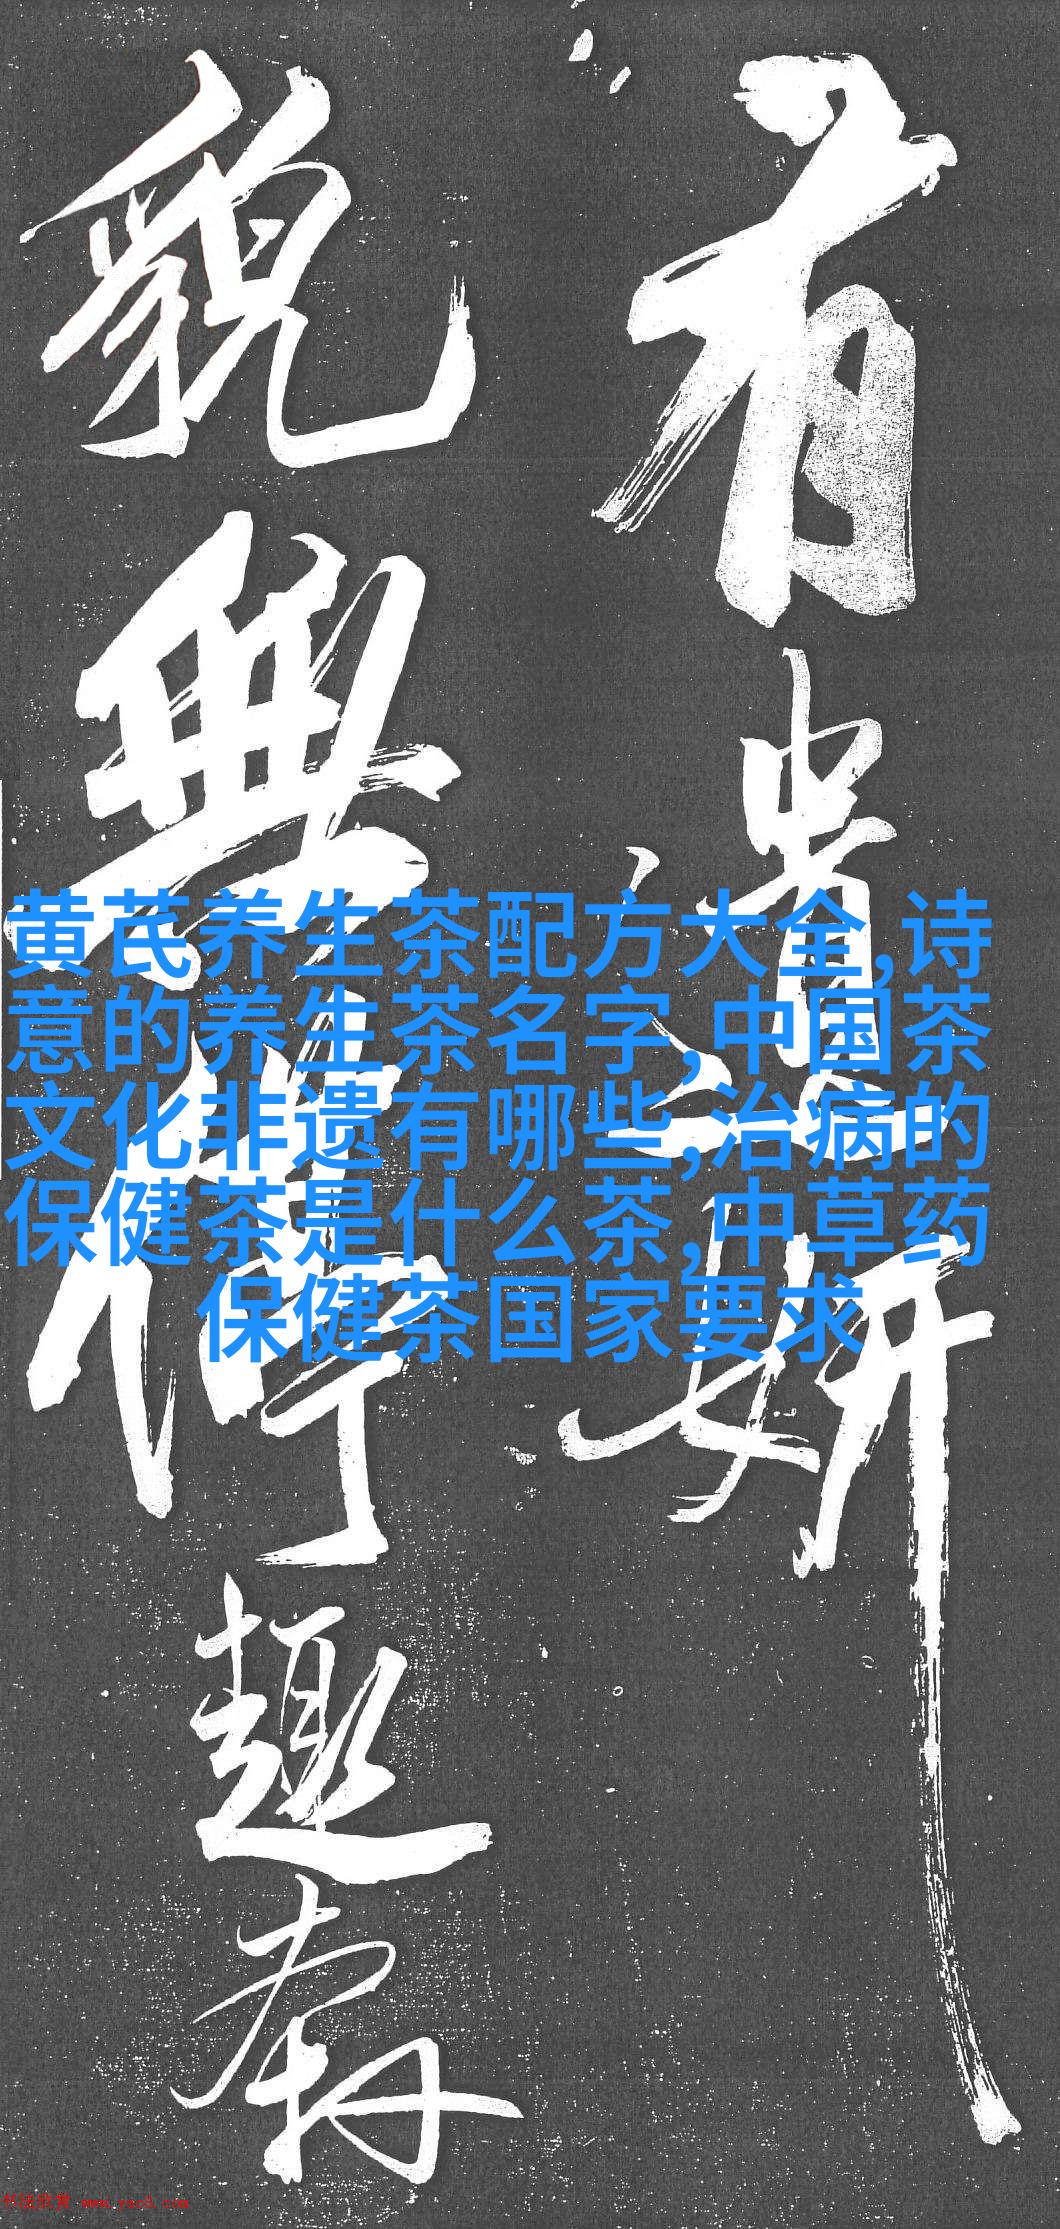 有遗妍
貌無停趣
黄芪养生茶配方大全,诗
意的养生茶名字,中国茶
文化非遗有哪些,治病的
保健茶是什么茶,中草药
保健茶国家要求
书法欣赏 www.yac8.com